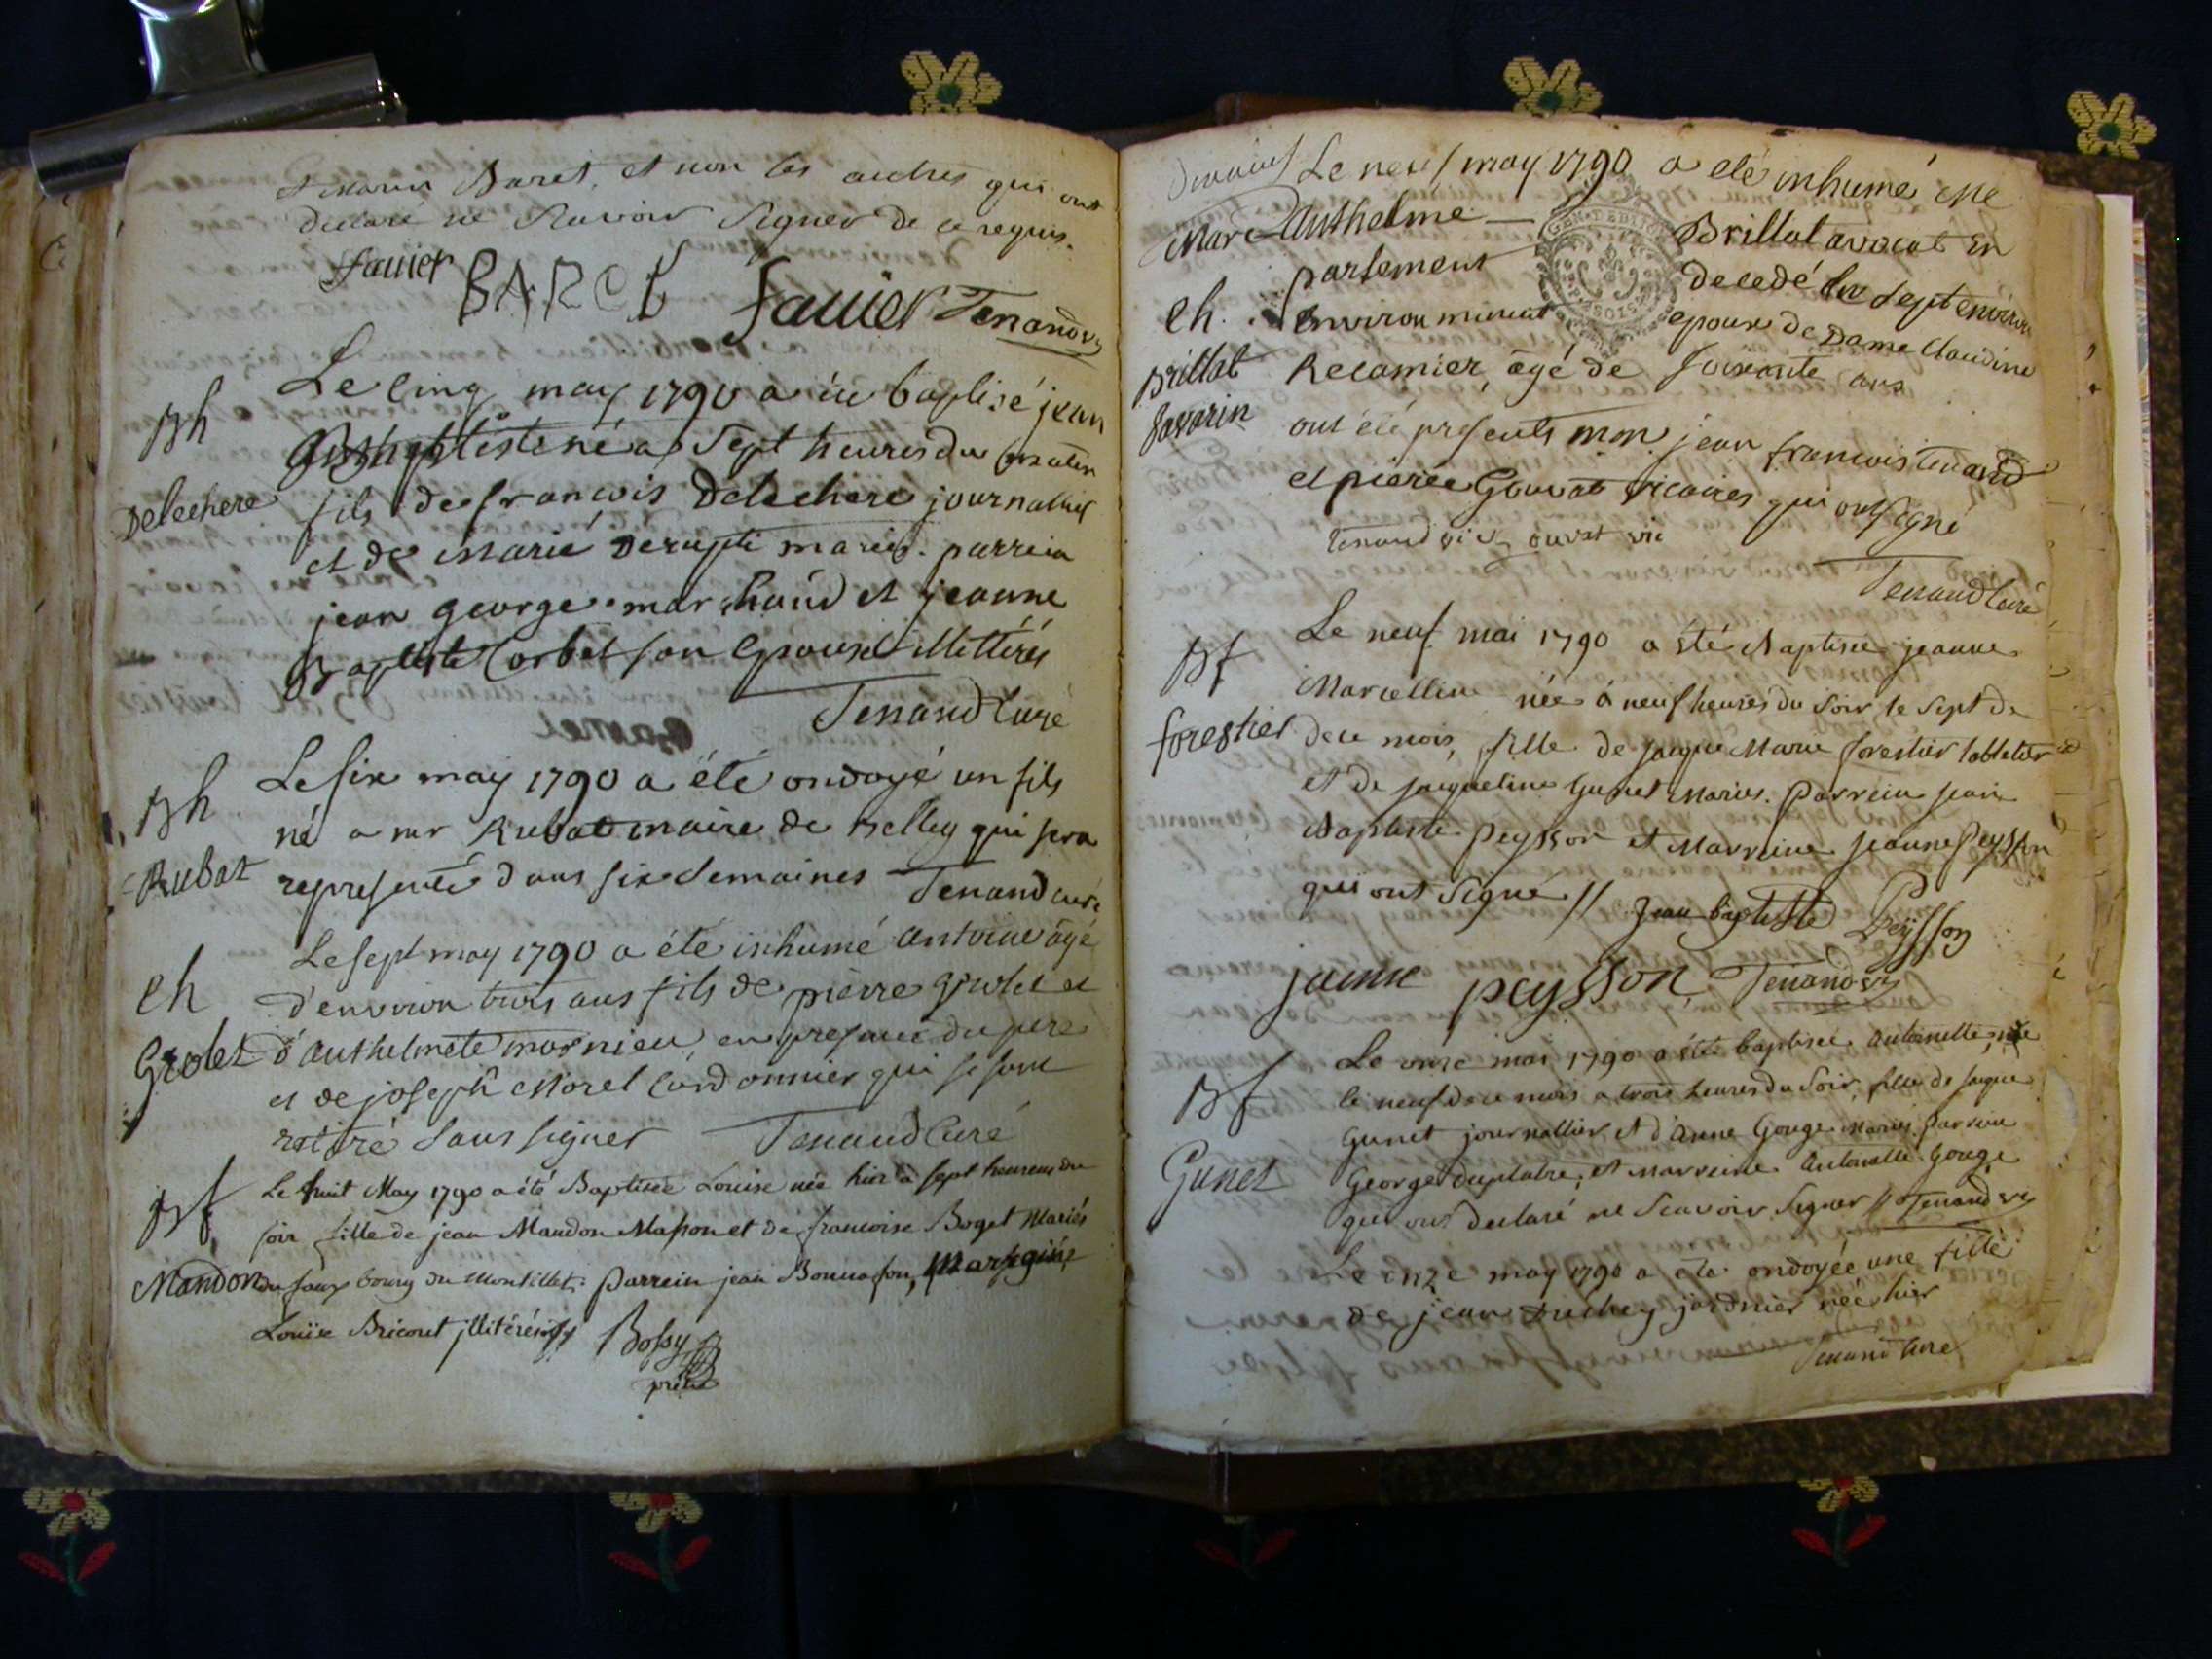 et Marin Baret, et non les autres qui ont
declaré ne Scavoir Signer de ce requis.
favier BARET favier Tenand vic
Bh
Delechere
Le cinq may 1790 a été baptisé jean
Baptiste né a Sept heures du matin
fils de francois Delechere journallier
et de Marie Derupti mariés. parrein
jean george marchand et jeanne
Baptiste Corbet son Epouse illitérés
Tenand Curé
Bh
Rubat
Le six may 1790 a été ondoyé un fils
né a mr Rubat maire de Belley qui sera
representé dans six semaines Tenand curé
Eh
Grolet
Le sept may 1790 a été inhumé antoine âgé
d'environ trois ans fils de pierre Grolet et
d'anthelmete mornieu en presence du pere
et de joseph Morel Cordonnier qui se sont
retiré sans signer Tenand Curé
Bf
Mandon
Le huit May 1790 a été Baptisée Louise née hier à sept heures du
soir fille de jean Mandon Masson et de francoise Boget Mariés
du faux bourg du Montillet: parrein jean Bonnafon, Mar
Louise Bricout illitérés Bossy
prêtre
Le neuf may 1790 a eté inhumé Me
Marc Anthelme Brillat avocat En
parlement decedé le sept environ
Environ minuit epoux de Dame Claudine
Eh.
Brillat
Savarin
Recamier, âgé de soixante ans
ont été presents mon jean francois tenand
et pierre Gouvat vicaires qui ont signé
tenand vic ouvat vic
Tenand Curé
Bf
forestier
Le neuf mai 1790 a été Baptisée jeanne
Marcelline née à neuf heures du Soir le Sept de
de ce mois, fille de jaque Marie forestier
et de jaqueline Gunet Mariés. Parrein jean
Baptiste Peysson et Marreine jeanne Peysson
qui ont Signé // Jean baptiste Peysson
jeanne peysson Tenand vic
Bf
Gunet
Le onze mai 1790 a été baptisée antoinette, née
le neuf de ce mois a trois heures du Soir, fille de jaque
Gunet journallier et d'anne Gouge Mariés. Parrein
George Duplatre, et Marreine Antoinette Gouge
qui ont declaré ne Scavoir Signer // Tenand vic
Le onze may 1790 a été ondoyée une fille
de jean Duchey jardinier née hier
Tenand Curé